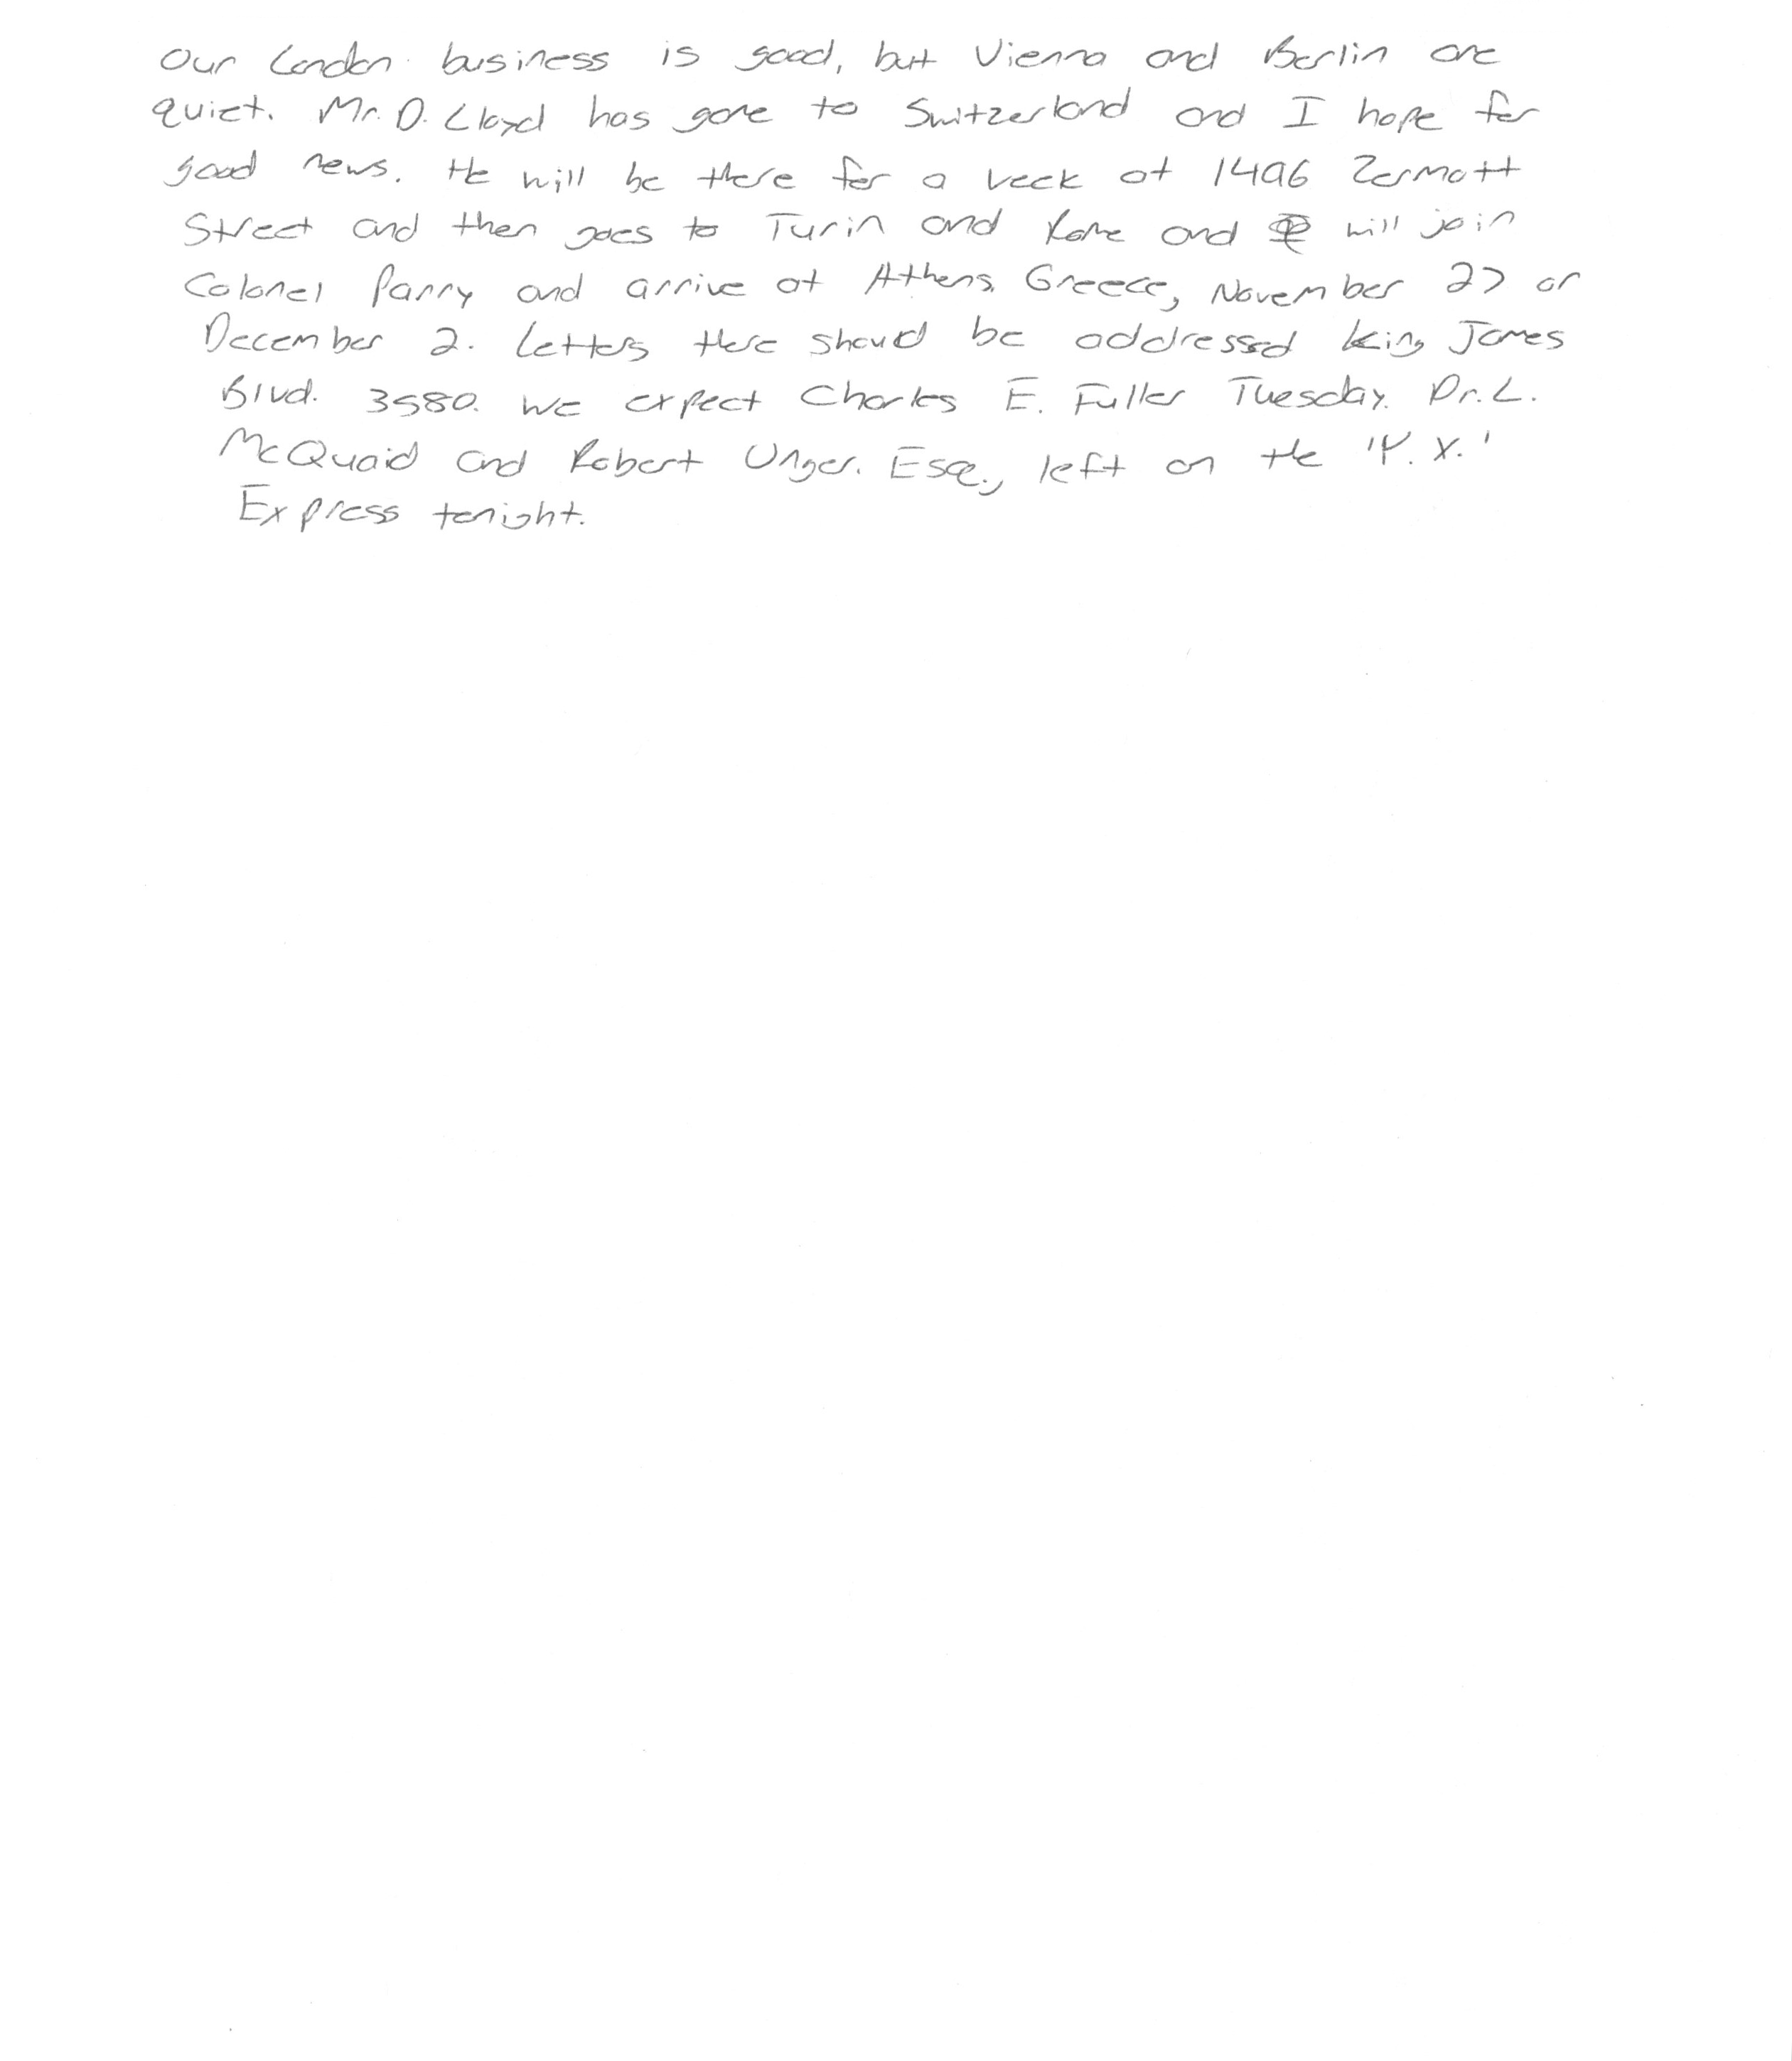 Our London business is good, but Vienna and Berlin are
quiet. Mr. D. Lloyd has gone to Switzerland and I hope for
good news. He will be there for a week at 1496 Zermott
Street and then goes to Turin and Rome and will join
Colonel Parry and arrive at Athens, Greece, November 27 or
December 2. Letters there should be addressed King James
Blvd. 3580. We expect Charles E. Fuller Tuesday. Dr. L.
McQuaid and Robert Unger. Esq., left on the 'Y. X.'
Express tonight.